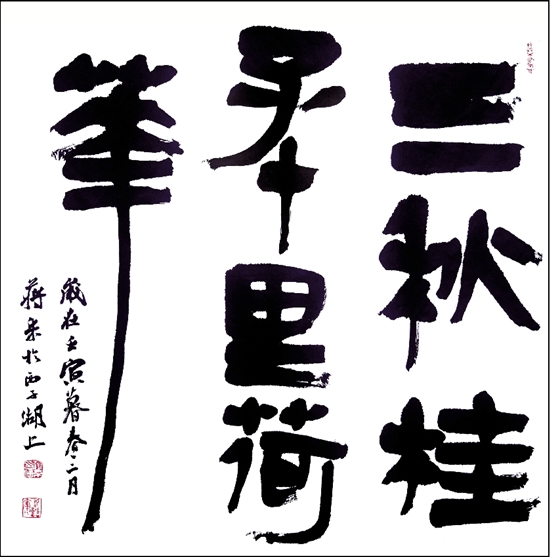 三秋桂
子十里荷
華
歲在壬寅暮春三月
蔣於西子湖上